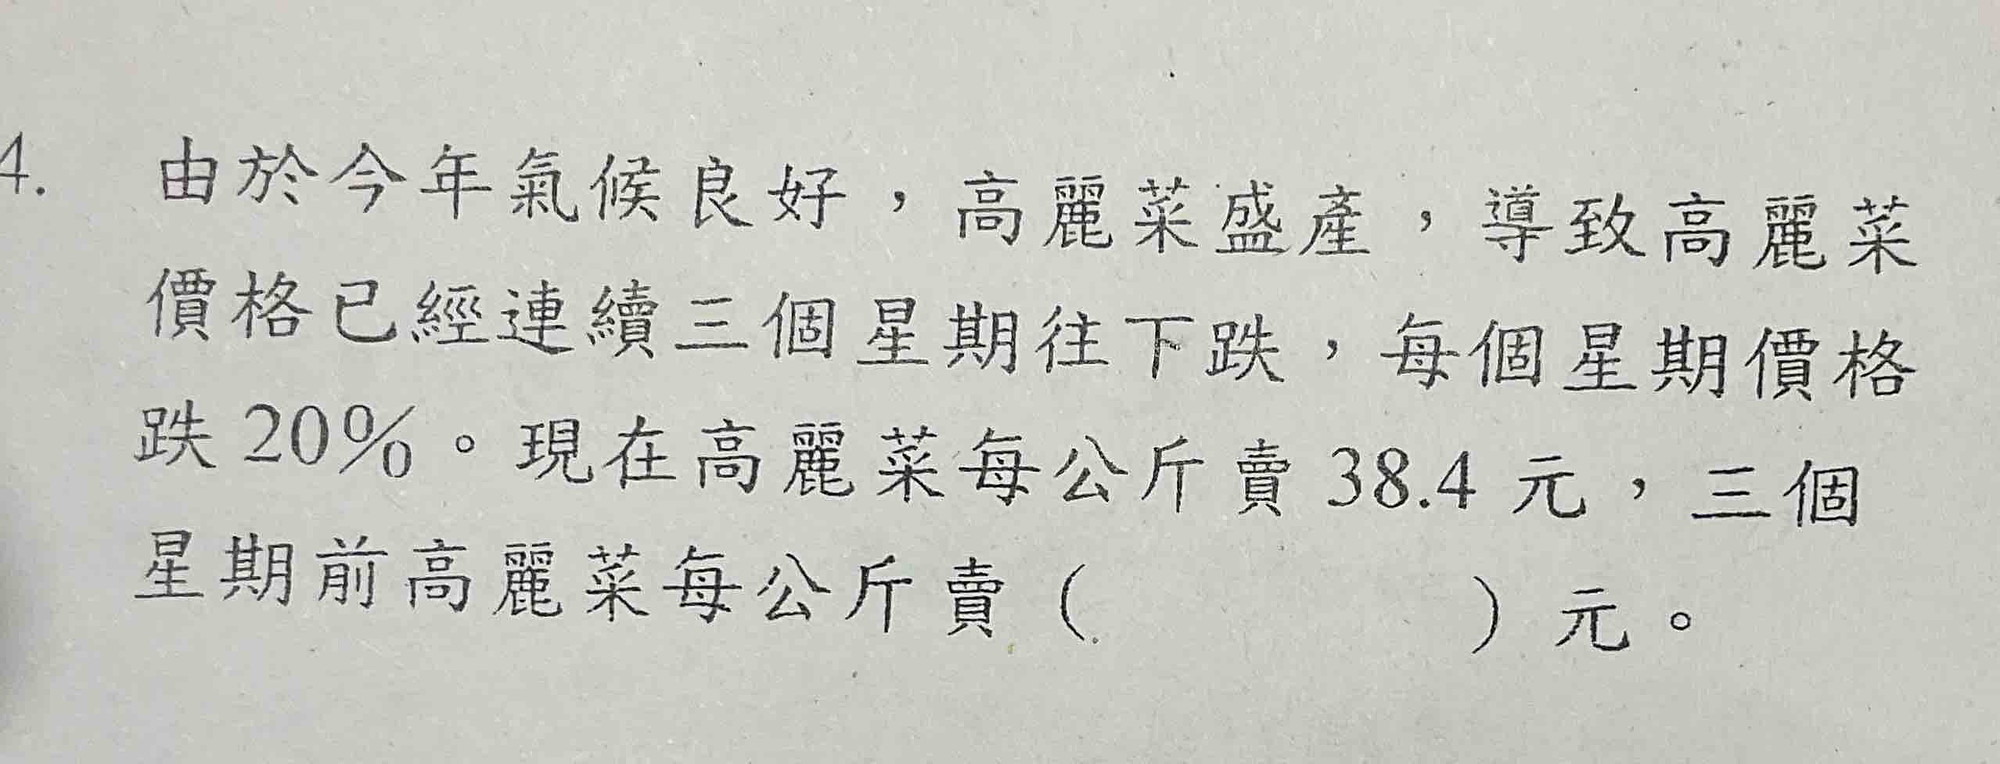 4. 由於今年氣候良好，高麗菜盛產，導致高麗菜
價格已經連續三個星期往下跌，每個星期價格
跌 20%。現在高麗菜每公斤賣 38.4 元，三個
星期前高麗菜每公斤賣（　　　　）元。